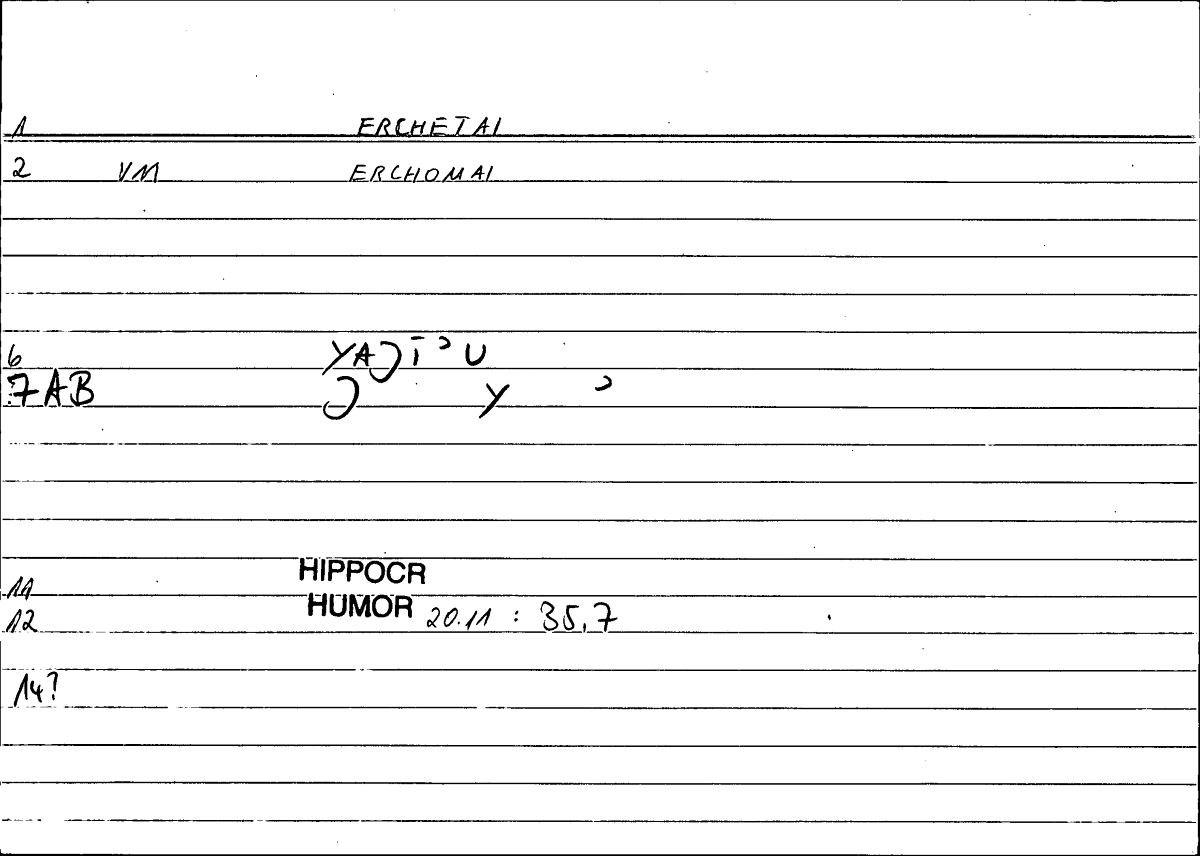 1 ERCHETAI
2 VM ERCHOMAI
6 YAJĪʾU
7AB J Y ʾ
11 HIPPOCR
12 HUMOR 20.11 : 35,7
14?